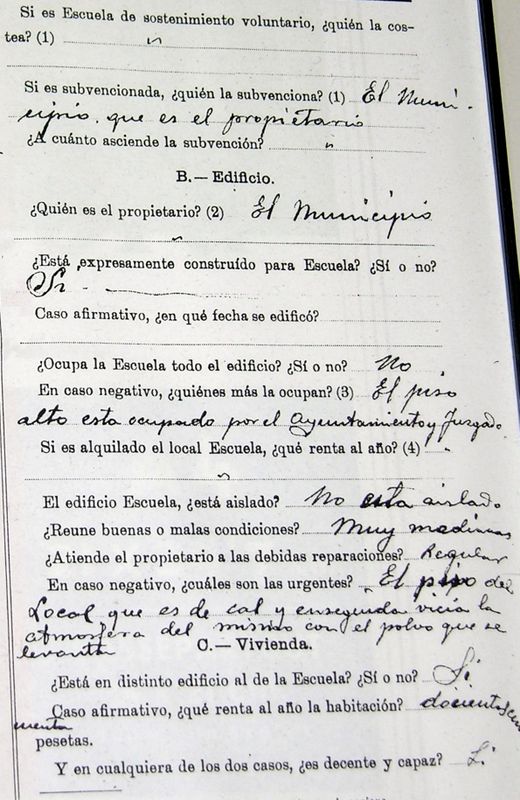 Si es Escuela de sostenimiento voluntario, ¿quién la cos-
tea? (1)
Si es subvencionada, ¿quién la subvenciona? (1) El Muni-
cipio, que es el propietario
¿A cuánto asciende la subvención? "
B.— Edificio.
¿Quién es el propietario? (2) El Municipio
¿Está expresamente construído para Escuela? ¿Sí o no?
Si -
Caso afirmativo, ¿en qué fecha se edificó?
¿Ocupa la Escuela todo el edificio? ¿Sí o no? No
En caso negativo, ¿quiénes más la ocupan? (3) El piso
alto esta ocupado por el Ayuntamiento y Juzgado
Si es alquilado el local Escuela, ¿qué renta al año? (4)
El edificio Escuela, ¿está aislado? No esta aislado
¿Reune buenas o malas condiciones? Muy medianas
¿Atiende el propietario a las debidas reparaciones? Regular
En caso negativo, ¿cuáles son las urgentes? El piso del
Local que es de cal y enseguida vicia la
atmosfera del mismo con el polvo que se
levanta
C.— Vivienda.
¿Está en distinto edificio al de la Escuela? ¿Sí o no? Si
Caso afirmativo, ¿qué renta al año la habitación?
pesetas.
Y en cualquiera de los dos casos, ¿es decente y capaz? Si